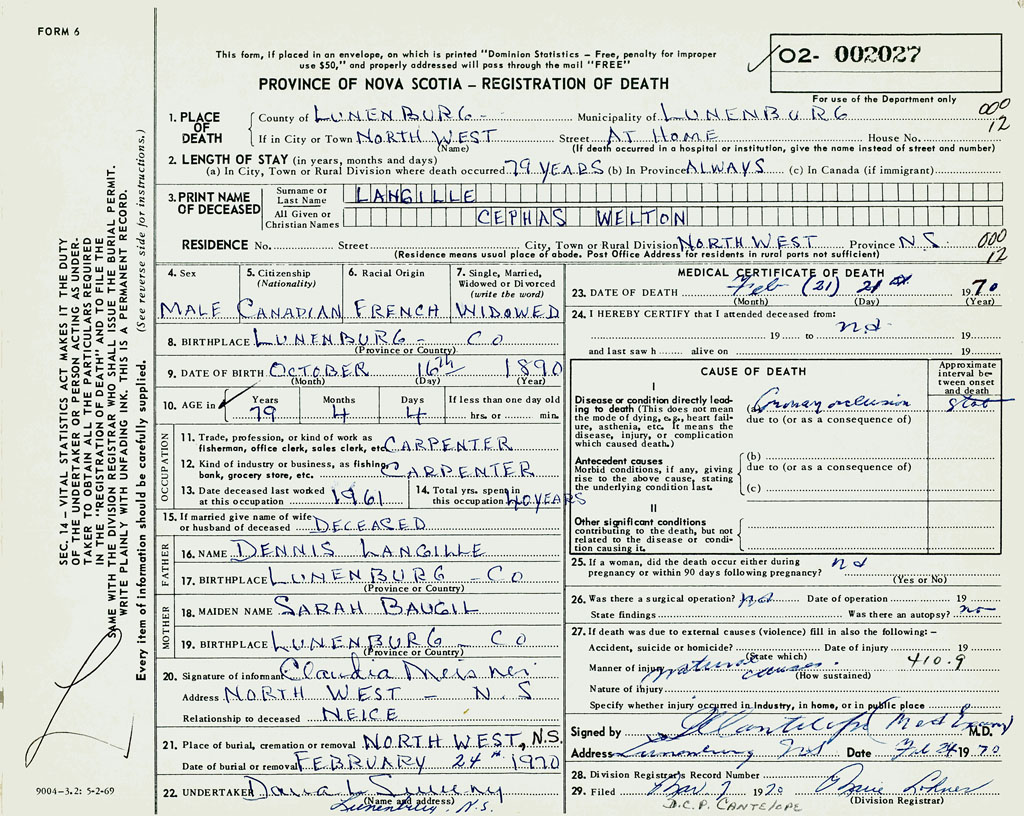 FORM 6
This form, if placed in an envelope, on which is printed "Dominion Statistics – Free, penalty for improper
use $50," and properly addressed will pass through the mail "FREE"
02- 002027
PROVINCE OF NOVA SCOTIA – REGISTRATION OF DEATH
For use of the Department only
000
12
1. PLACE OF DEATH
County of LUNENBURG - Municipality of LUNENBURG
If in City or Town NORTH WEST Street AT HOME House No.
(Name) (If death occurred in a hospital or institution, give the name instead of street and number)
2. LENGTH OF STAY (in years, months and days)
(a) In City, Town or Rural Division where death occurred 79 YEARS (b) In Province ALWAYS (c) In Canada (if immigrant)
3. PRINT NAME OF DECEASED
Surname or Last Name LANGILLE
All Given or Christian Names CEPHAS WELTON
RESIDENCE No. Street City, Town or Rural Division NORTH WEST Province N.S. 000
12
(Residence means usual place of abode. Post Office Address for residents in rural parts not sufficient)
4. Sex
MALE
5. Citizenship
(Nationality)
CANADIAN
6. Racial Origin
FRENCH
7. Single, Married,
Widowed or Divorced
(write the word)
WIDOWED
8. BIRTHPLACE LUNENBURG - CO
(Province or Country)
9. DATE OF BIRTH OCTOBER 16th 1890
(Month) (Day) (Year)
10. AGE in
Years Months Days If less than one day old
79 4 4 hrs. or min.
OCCUPATION
11. Trade, profession, or kind of work as
fisherman, office clerk, sales clerk, etc. CARPENTER
12. Kind of industry or business, as fishing,
bank, grocery store, etc. CARPENTER
13. Date deceased last worked
at this occupation 1961
14. Total yrs. spent in
this occupation 40 YEARS
15. If married give name of wife
or husband of deceased DECEASED
FATHER
16. NAME DENNIS LANGILLE
17. BIRTHPLACE LUNENBURG - CO
(Province or Country)
MOTHER
18. MAIDEN NAME SARAH BAUGIL
19. BIRTHPLACE LUNENBURG CO
(Province or Country)
20. Signature of informant Claudia Meisner
Address NORTH WEST - N.S
Relationship to deceased NEICE
21. Place of burial, cremation or removal NORTH WEST, N.S.
Date of burial or removal FEBRUARY 24th 1970
22. UNDERTAKER
(Name and address)
Lunenburg N.S.
MEDICAL CERTIFICATE OF DEATH
23. DATE OF DEATH Feb (21) 21st 1970
(Month) (Day) (Year)
24. I HEREBY CERTIFY that I attended deceased from:
19 to 19
and last saw h alive on 19
CAUSE OF DEATH
Approximate
interval be-
tween onset
and death
I
Disease or condition directly lead-
ing to death (This does not mean
the mode of dying, e.g., heart fail-
ure, asthenia, etc. It means the
disease, injury, or complication
which caused death.)
(a) Coronary occlusion
due to (or as a consequence of)
stat
Antecedent causes
Morbid conditions, if any, giving
rise to the above cause, stating
the underlying condition last.
(b)
due to (or as a consequence of)
(c)
II
Other significant conditions
contributing to the death, but not
related to the disease or condi-
tion causing it.
25. If a woman, did the death occur either during
pregnancy or within 90 days following pregnancy?
(Yes or No)
26. Was there a surgical operation? Date of operation 19
State findings Was there an autopsy? no
27. If death was due to external causes (violence) fill in also the following: –
Accident, suicide or homicide? Date of injury 19
(State which) 410.9
Manner of injury natural causes
(How sustained)
Nature of injury
Specify whether injury occurred in industry, in home, or in public place
Signed by M.D.
Address Lunenburg NS Date Feb 24 1970
28. Division Registrar's Record Number
29. Filed Mar 7 1970
(Division Registrar)
D.C.P. CANTELOPE
SEC. 14 – VITAL STATISTICS ACT MAKES IT THE DUTY
OF THE UNDERTAKER OR PERSON ACTING AS UNDER-
TAKER TO OBTAIN ALL THE PARTICULARS REQUIRED
IN THE "REGISTRATION OF DEATH" AND TO FILE THE
SAME WITH THE DIVISION REGISTRAR WHO SHALL ISSUE THE BURIAL PERMIT.
WRITE PLAINLY WITH UNFADING INK. THIS IS A PERMANENT RECORD.
Every item of information should be carefully supplied. (See reverse side for instructions.)
9004-3.2: 5-2-69